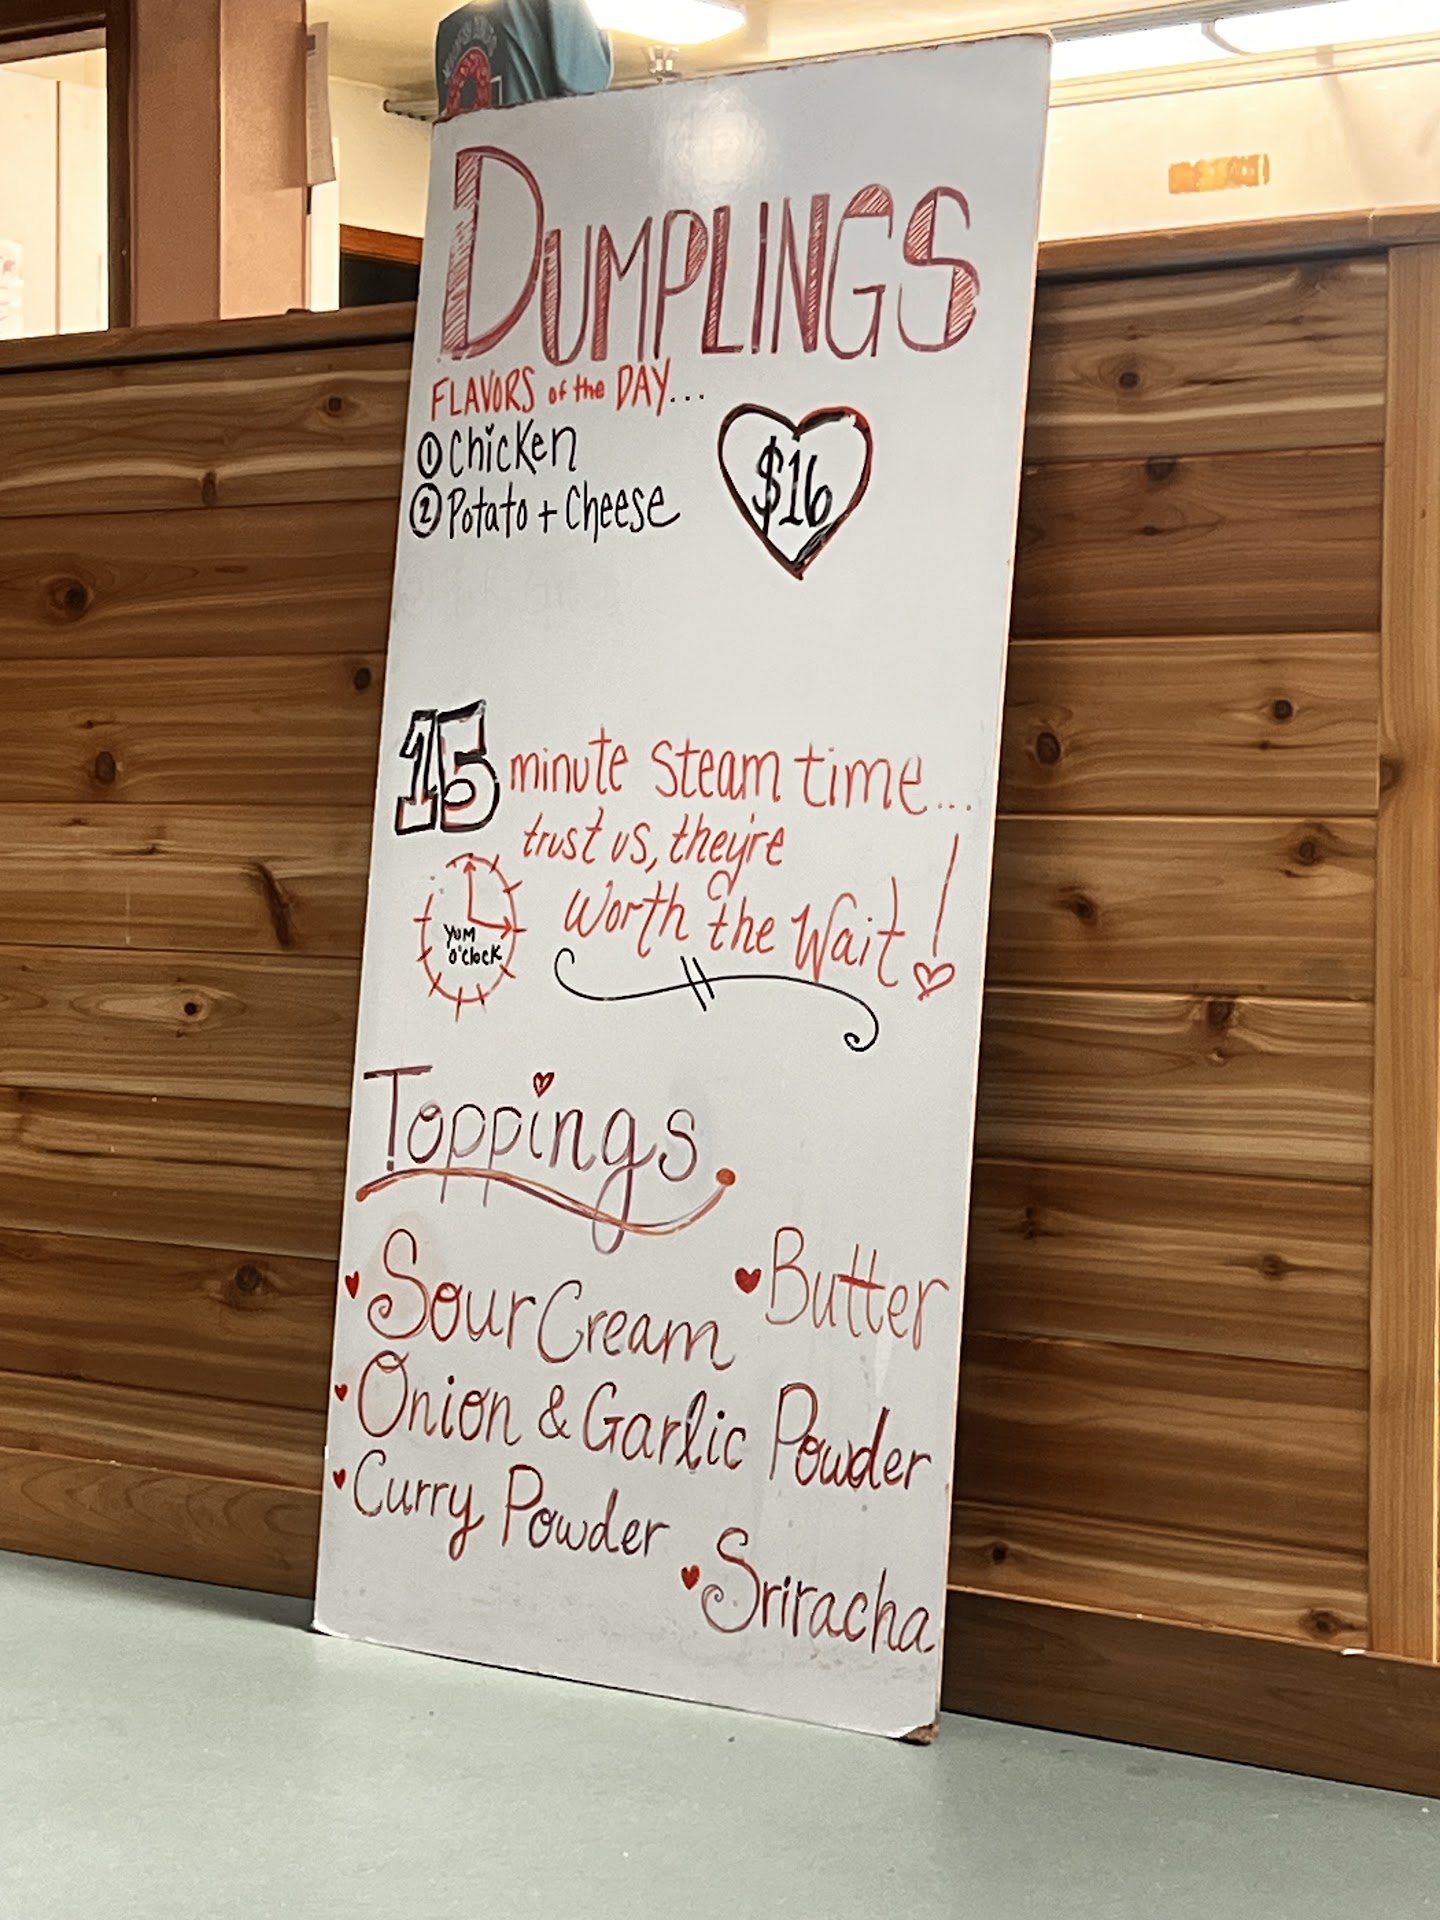 DUMPLINGS
FLAVORS of the DAY...
① Chicken
② Potato + Cheese
$16
15 minute steam time...
trust us, they're
worth the wait!
YUM
o'clock
Toppings
Sour Cream
Butter
Onion & Garlic Powder
Curry Powder
Sriracha